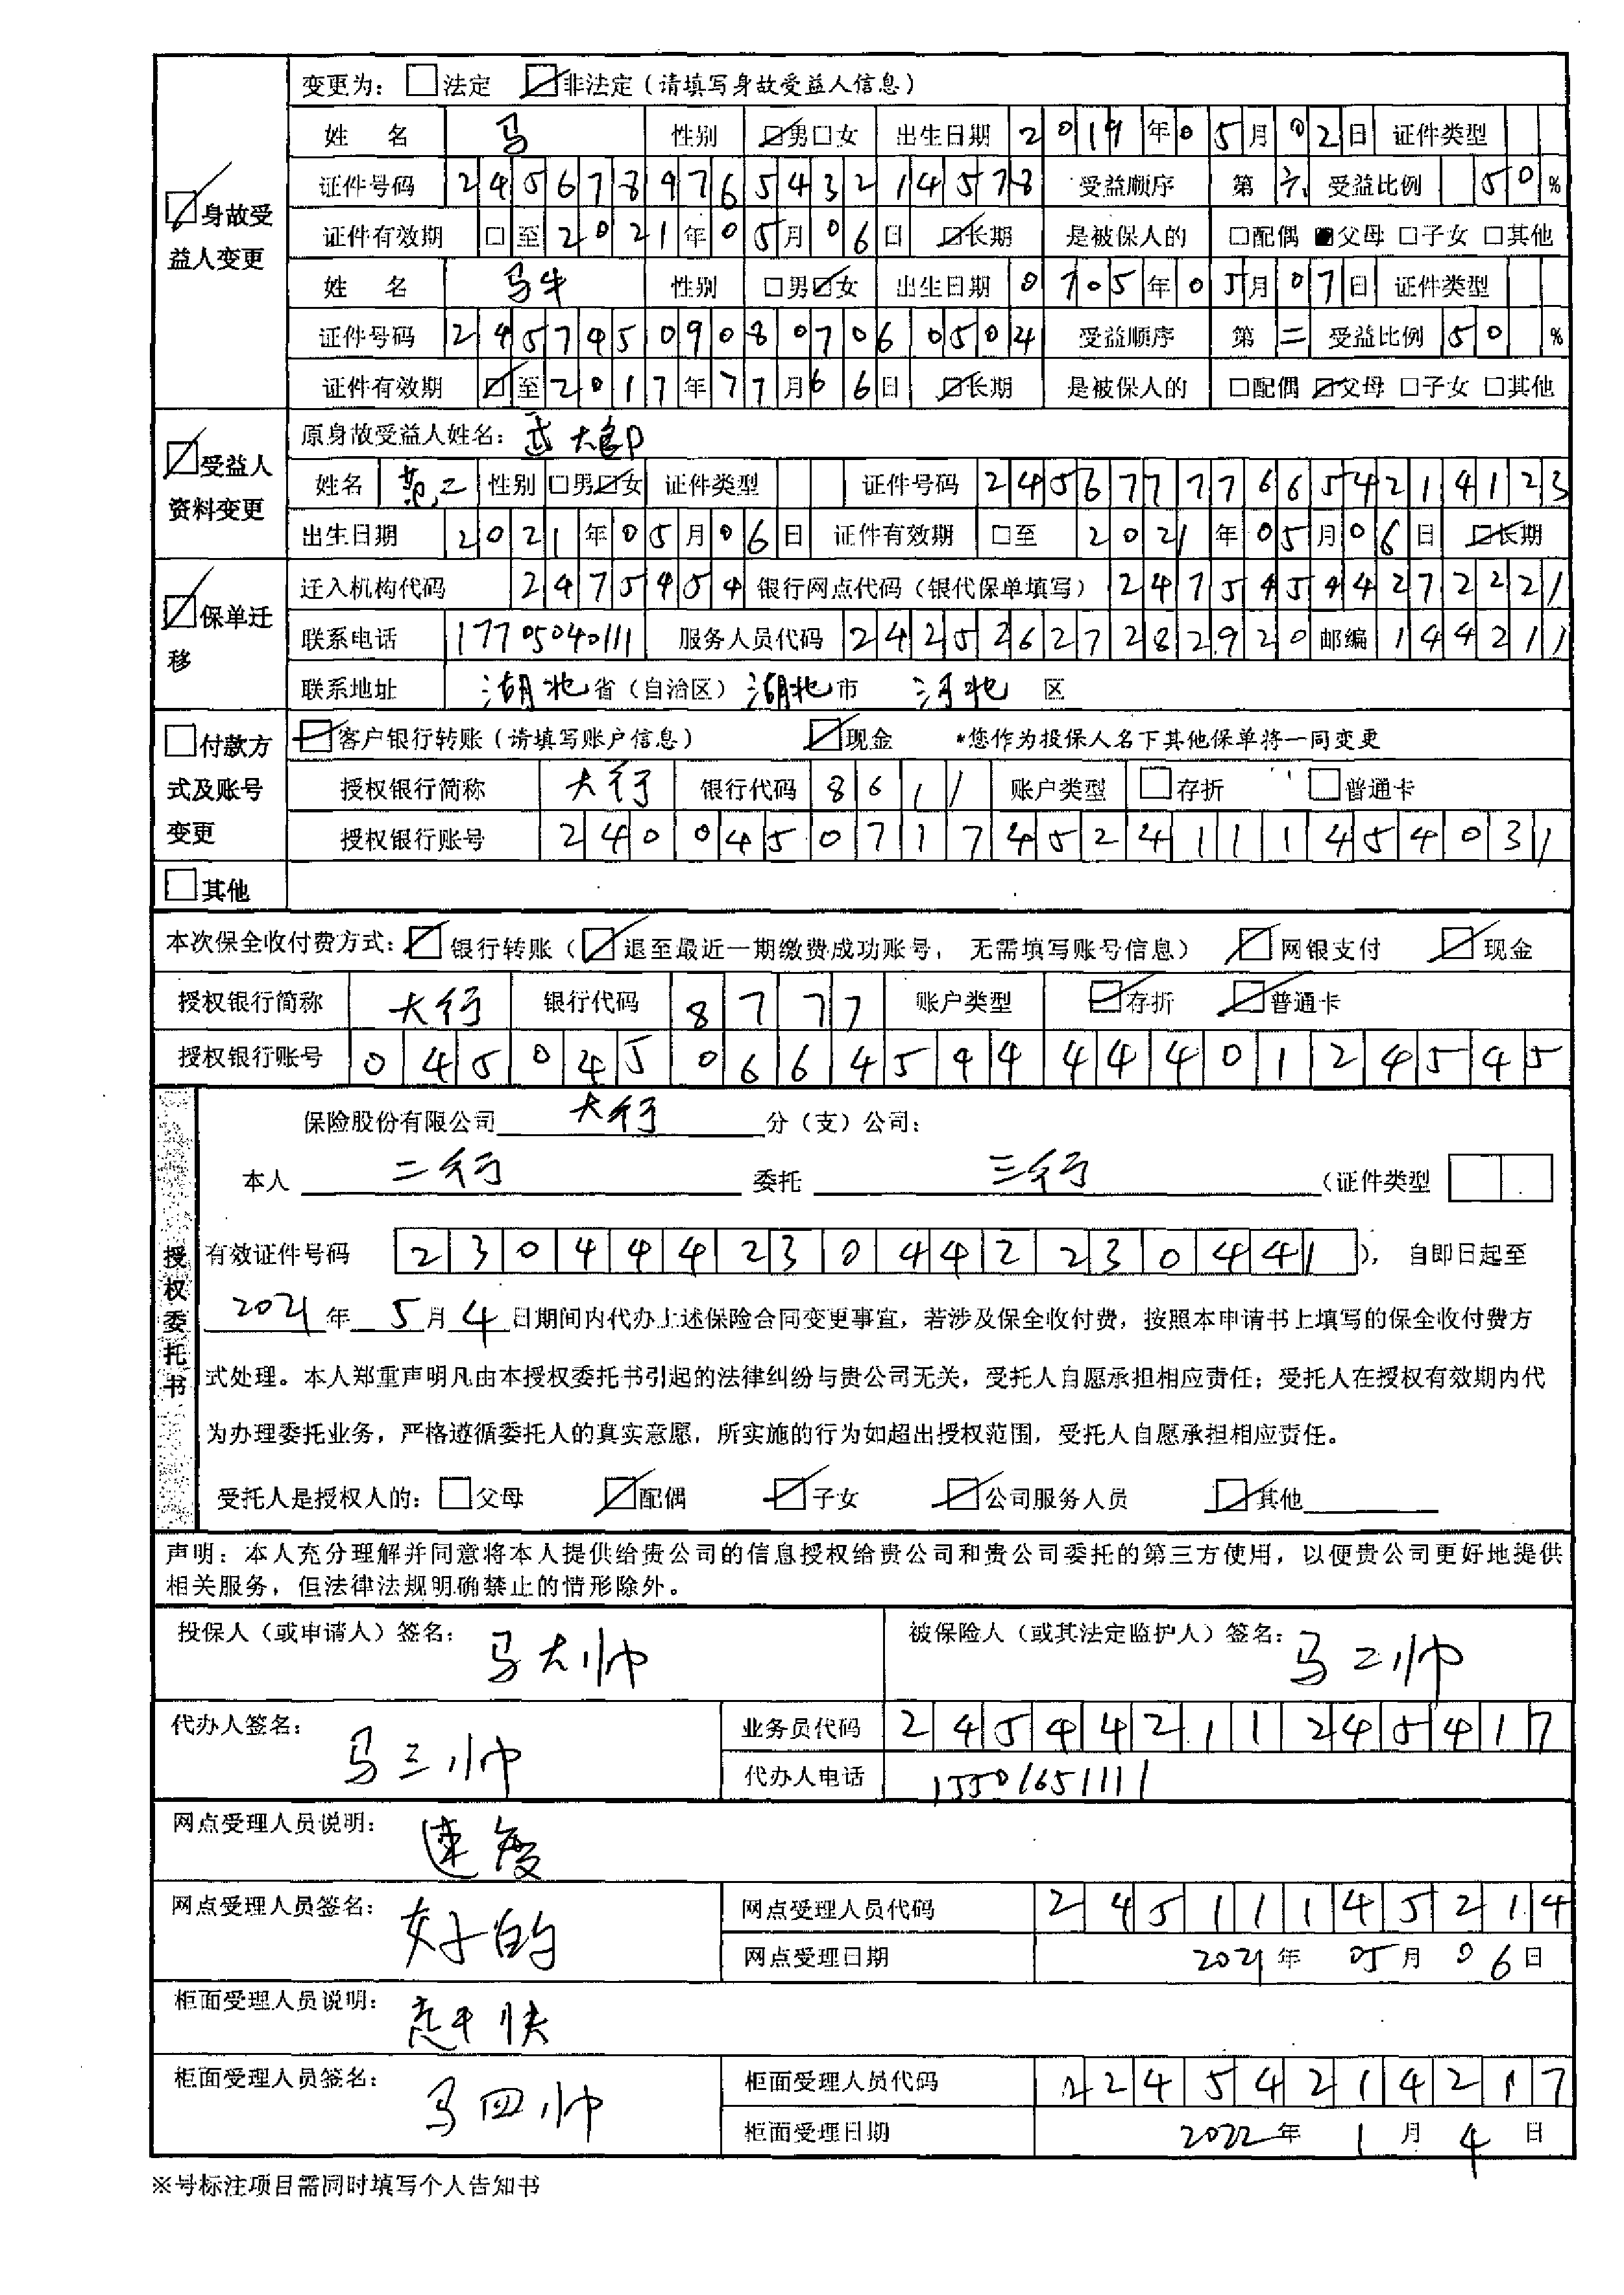 变更为：□法定 ☑非法定（请填写身故受益人信息）
☑身故受益人变更
姓 名 马 性别 ☑男□女 出生日期 2019年05月02日 证件类型
证件号码 245678976543214578 受益顺序 第 受益比例 50%
证件有效期 □至2021年05月06日 ☑长期 是被保人的 □配偶 ■父母 □子女 □其他
姓 名 马牛 性别 □男☑女 出生日期 0705年05月07日 证件类型
证件号码 245745090807060504 受益顺序 第二 受益比例 50%
证件有效期 ☑至2017年77月66日 ☑长期 是被保人的 □配偶 ☑父母 □子女 □其他
☑受益人资料变更
原身故受益人姓名：武大郎
姓名 二 性别 □男☑女 证件类型 证件号码 245677776654214123
出生日期 2021年05月06日 证件有效期 □至 2021年05月06日 ☑长期
☑保单迁移
迁入机构代码 2475454 银行网点代码（银代保单填写）24754544272221
联系电话 17705040111 服务人员代码 24252627282920 邮编 144211
联系地址 湖北省（自治区）湖北市 河北 区
□付款方式及账号变更
☑客户银行转账（请填写账户信息） ☑现金 *您作为投保人名下其他保单将一同变更
授权银行简称 大行 银行代码 8611 账户类型 □存折 □普通卡
授权银行账号 24004507174524111454031
□其他
本次保全收付费方式：☑银行转账（☑退至最近一期缴费成功账号，无需填写账号信息） ☑网银支付 ☑现金
授权银行简称 大行 银行代码 8777 账户类型 ☑存折 ☑普通卡
授权银行账号 04504506645944440124545
授权委托书
保险股份有限公司 大行 分（支）公司：
本人 二行 委托 三行 （证件类型
有效证件号码 230444230442230441），自即日起至
2021年5月4日期间内代办上述保险合同变更事宜，若涉及保全收付费，按照本申请书上填写的保全收付费方
式处理。本人郑重声明凡由本授权委托书引起的法律纠纷与贵公司无关，受托人自愿承担相应责任；受托人在授权有效期内代
为办理委托业务，严格遵循委托人的真实意愿，所实施的行为如超出授权范围，受托人自愿承担相应责任。
受托人是授权人的：□父母 ☑配偶 ☑子女 ☑公司服务人员 ☑其他
声明：本人充分理解并同意将本人提供给贵公司的信息授权给贵公司和贵公司委托的第三方使用，以便贵公司更好地提供
相关服务，但法律法规明确禁止的情形除外。
投保人（或申请人）签名：马大帅 被保险人（或其法定监护人）签名：马二帅
代办人签名：马三帅 业务员代码 24544211245417
代办人电话 15501651111
网点受理人员说明：速度
网点受理人员签名：好的 网点受理人员代码 24511145214
网点受理日期 2021年05月06日
柜面受理人员说明：
柜面受理人员签名：马四帅 柜面受理人员代码 22454214217
柜面受理日期 2022年1月4日
※号标注项目需同时填写个人告知书